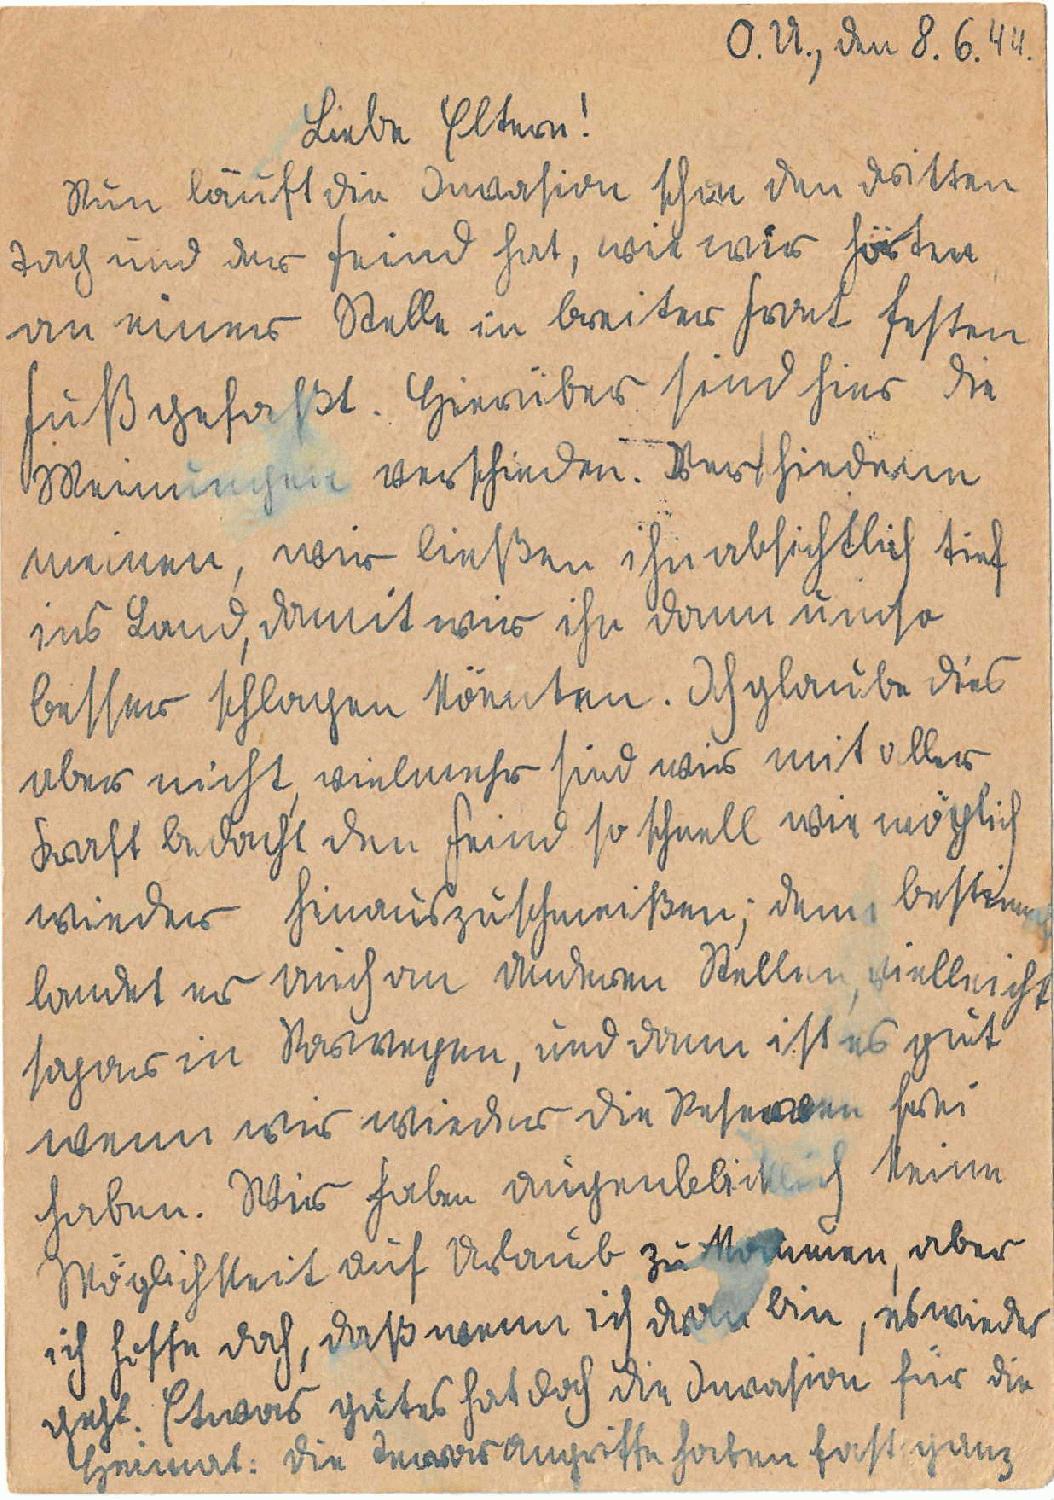 O.U., den 8.6.44.
Liebe Eltern!
Nun läuft die Invasion schon den dritten
Tag und der Feind hat, wie wir hörten
an einer Stelle in breiter Front festen
Fuß gefaßt. Hierüber sind hier die
Meinungen verschieden. Verschiedene
meinen, wir ließen ihn absichtlich tief
ins Land, damit wir ihn dann umso
besser schlagen könnten. Ich glaube dies
aber nicht, vielmehr sind wir mit aller
Kraft bedacht den Feind so schnell wie möglich
wieder hinauszuschmeißen; denn bestimmt
landet er auch an anderen Stellen, vielleicht
sogar in Norwegen, und dann ist es gut
wenn wir wieder die Reserven frei
haben. Wir haben augenblicklich keine
Möglichkeit auf Urlaub zu kommen, aber
ich hoffe doch, daß wenn ich dran bin, es wieder
geht. Etwas gutes hat doch die Invasion für die
Heimat: die Terrorangriffe haben fast ganz